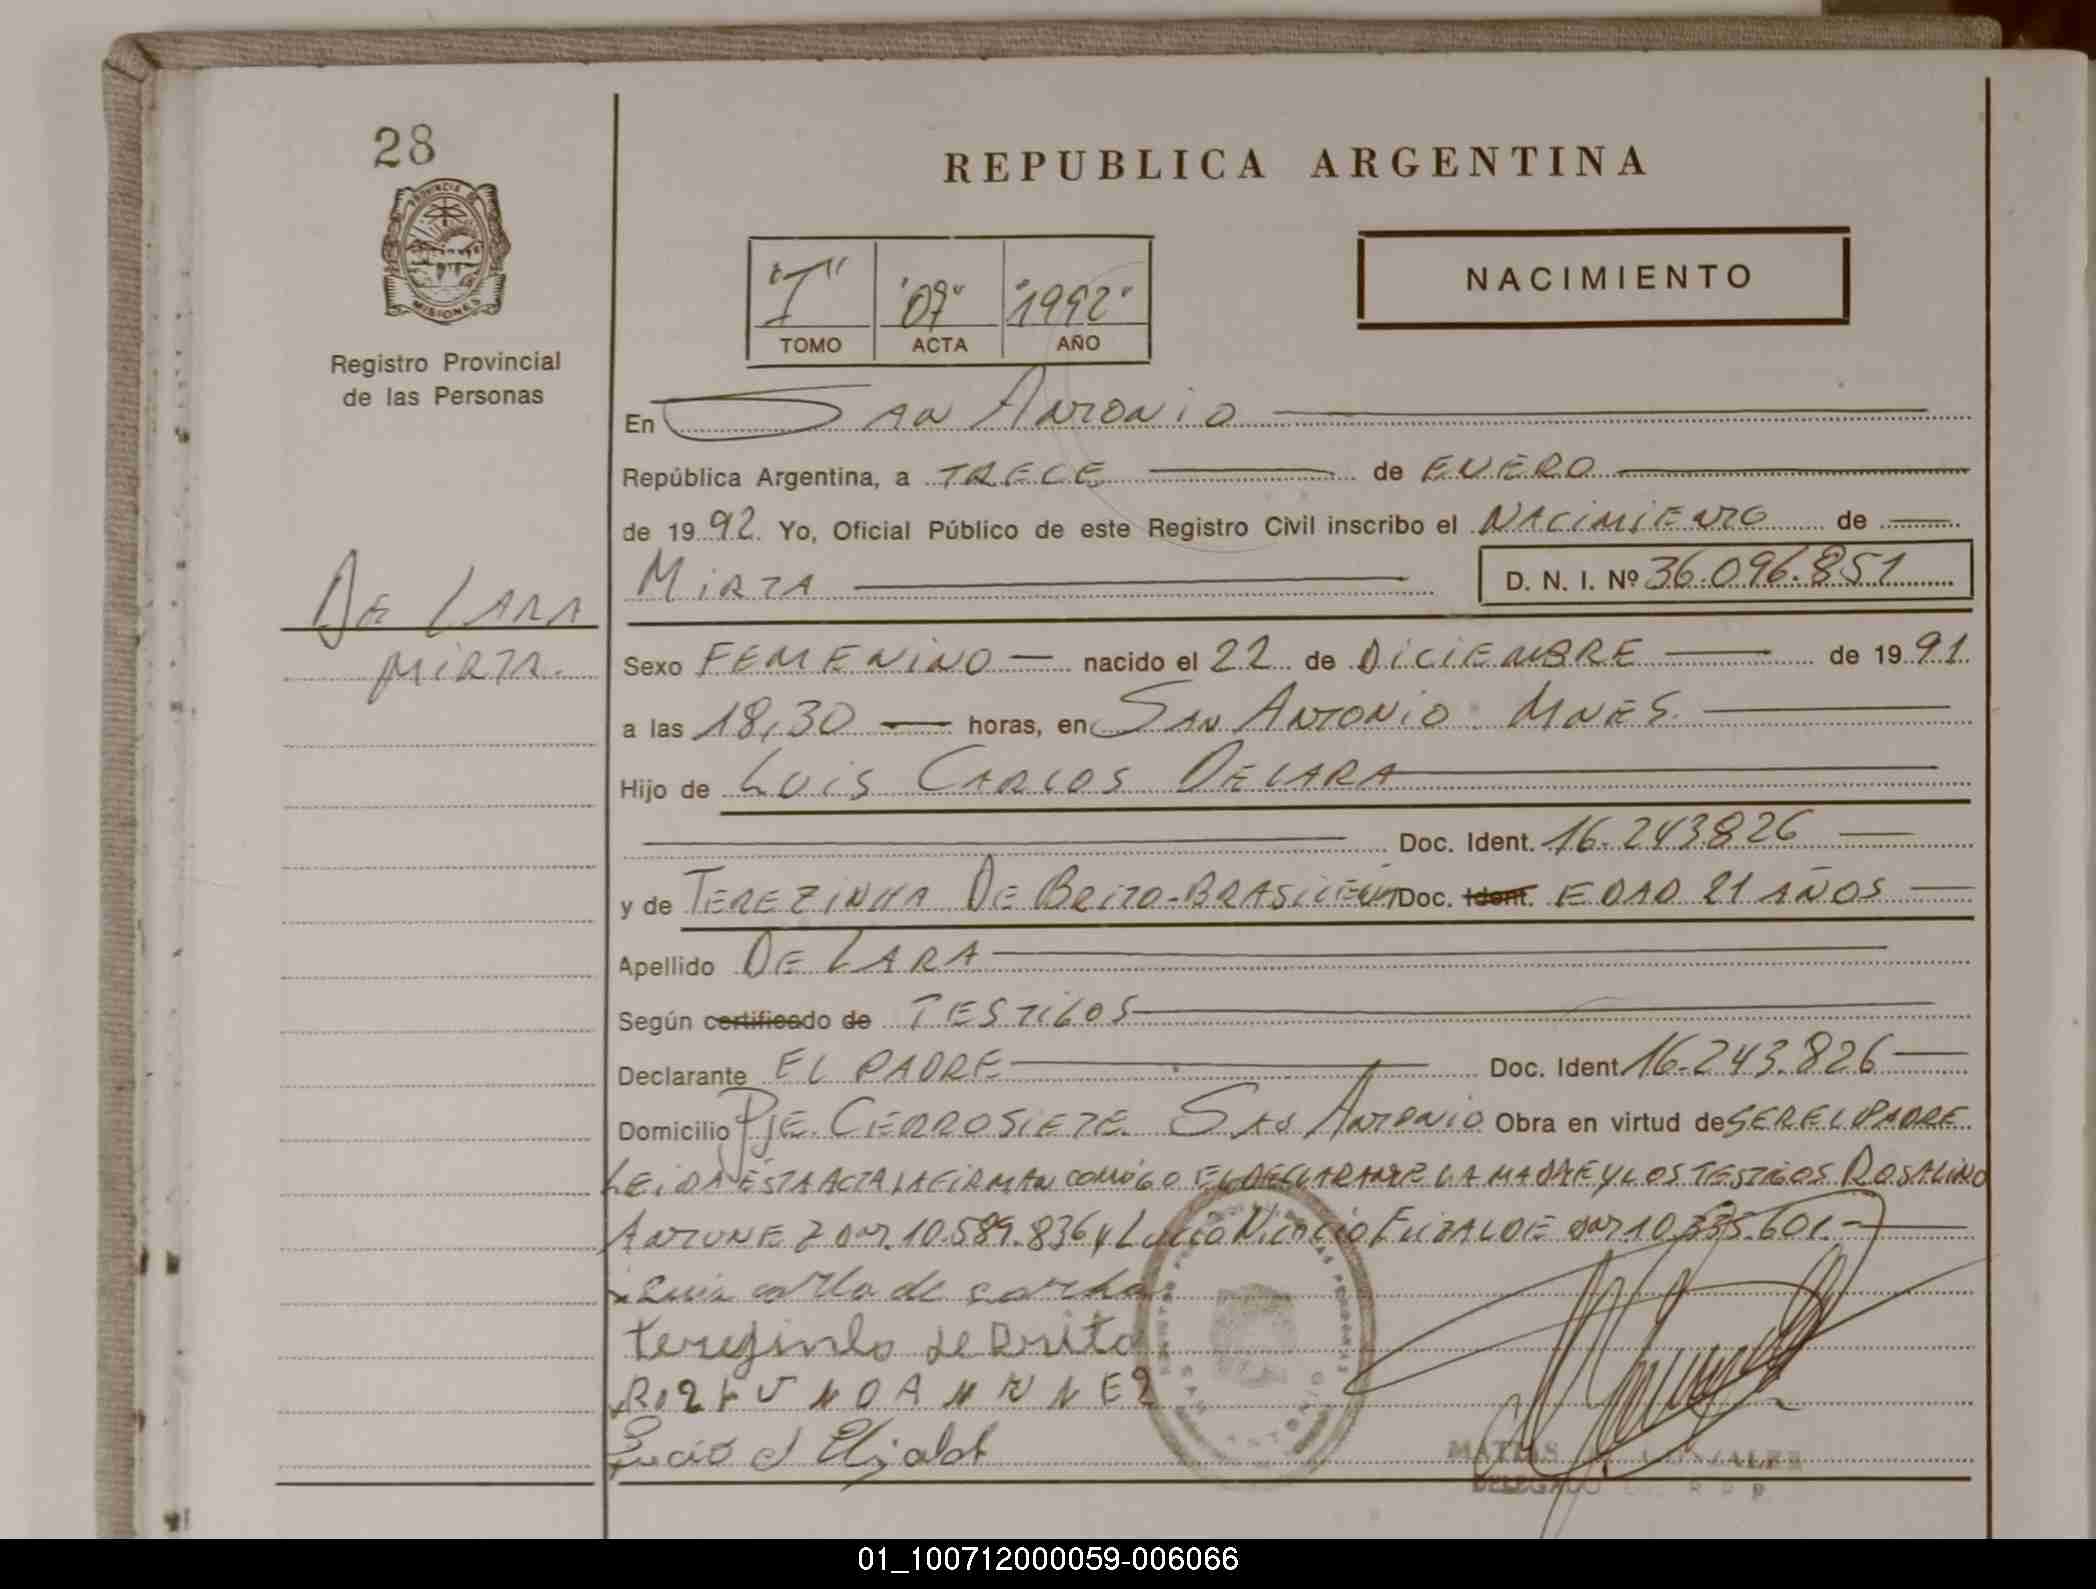 28
PROVINCIA DE
MISIONES
Registro Provincial
de las Personas
REPUBLICA ARGENTINA
"I" "07" "1992"
TOMO ACTA AÑO
NACIMIENTO
En SAN ANTONIO
República Argentina, a TRECE de ENERO
de 1992. Yo, Oficial Público de este Registro Civil inscribo el NACIMIENTO de
MIRTA D. N. I. Nº 36.096.851
DE LARA
MIRTA.
Sexo FEMENINO nacido el 22 de DICIEMBRE de 1991.
a las 18,30 horas, en SAN ANTONIO MNES.
Hijo de LUIS CARLOS DELARA
Doc. Ident. 16.243.826
y de TEREZINHA DE BRITO-BRASILEÑA Doc. Ident. EDAD 21 AÑOS
Apellido DE LARA
Según certificado de TESTIGOS
Declarante EL PADRE Doc. Ident. 16.243.826
Domicilio PJE. CERRO SIETE. SAN ANTONIO Obra en virtud de SER EL PADRE.
LEIDA ESTA ACTA LA FIRMAN COMIGO EL DECLARANTE LA MADRE Y LOS TESTIGOS ROSALINO
ANTUNEZ 10.589.836 y LUCIO ELIZALDE 10.335.601.-
de
de Brito
Lucio
SAN ANTONIO
MATIAS GONZALEZ
DELEGADO R P P
01_100712000059-006066